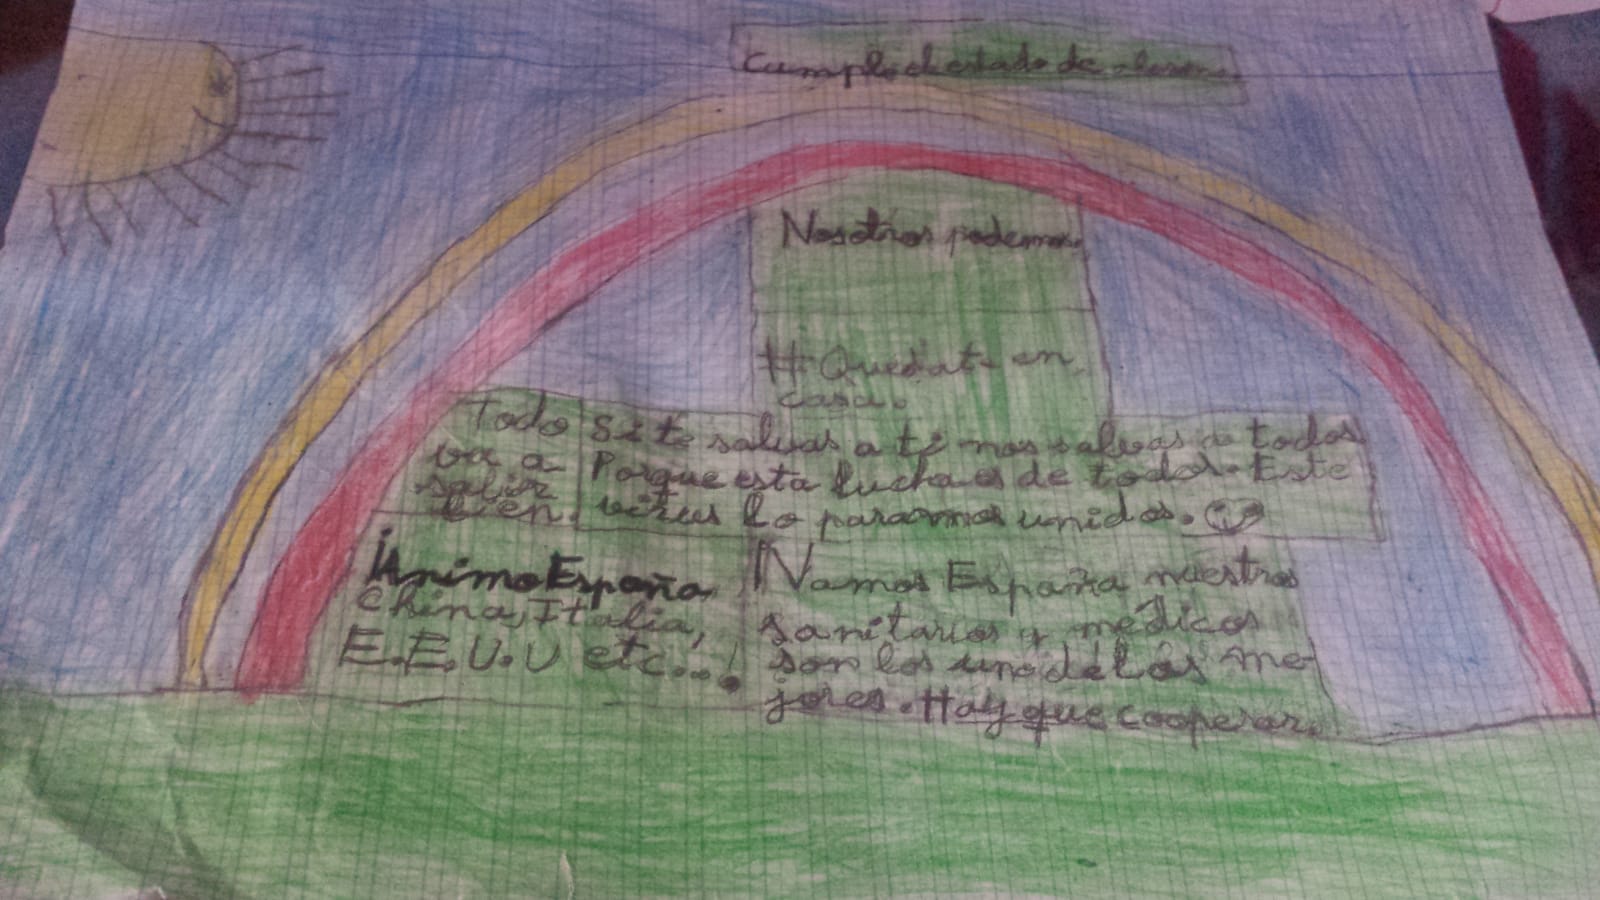 Cumple el estado de alarma.
Nosotros podemos
#Quedate en
casa.
Todo
va a
salir
bien.
Si te salvas a ti nos salvas a todos
Porque esta lucha es de todos. Este
virus lo paramos unidos.
¡Animo España
China, Italia,
E.E.U.U etc...!
Vamos España nuestros
sanitarios y médicos
son los uno de los me-
jores. Hay que cooperar.